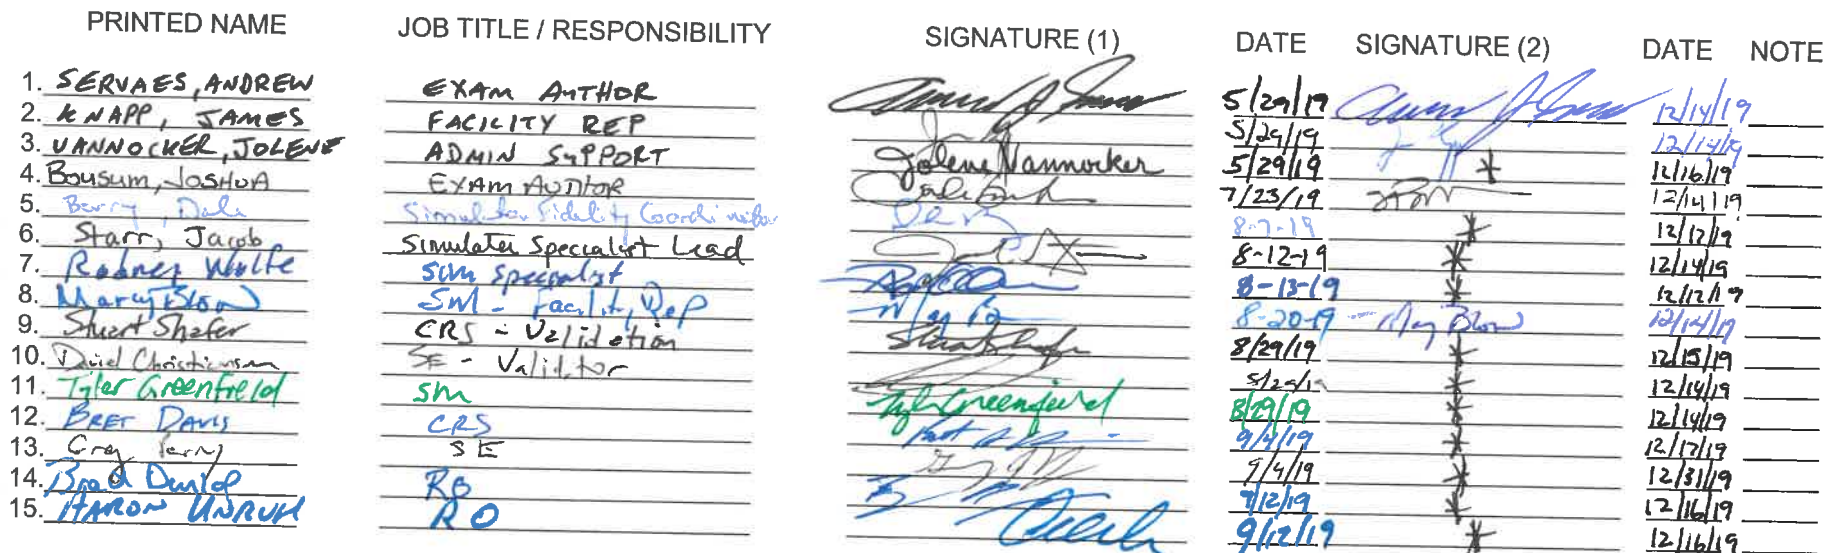 PRINTED NAME JOB TITLE / RESPONSIBILITY SIGNATURE (1) DATE SIGNATURE (2) DATE NOTE
1. SERVAES, ANDREW EXAM AUTHOR 5/29/19 12/14/19
2. KNAPP, JAMES FACILITY REP 5/29/19 12/14/19
3. VANNOCKER, JOLENE ADMIN SUPPORT Jolene Vannocker 5/29/19 * 12/16/19
4. Bousum, JOSHUA EXAM AUTHOR 7/23/19 12/14/19
5. Berry, Dale Simulator Fidelity Coordinator 8-7-19 * 12/17/19
6. Starr, Jacob Simulator Specialist Lead 8-12-19 * 12/14/19
7. Rodney Wolfe Sim specialist 8-13-19 * 12/12/19
8. Marcy Blow SM - Facility Rep 8-20-19 May Blow 12/14/19
9. Stuart Shafer CRS - Validation Stuart Shafer 8/29/19 * 12/15/19
10. David Christiansen SE - Validator * 12/14/19
11. Tyler Greenfield SM Tyler Greenfield 8/29/19 * 12/14/19
12. BRET DAVIS CRS 9/4/19 * 12/17/19
13. Greg SE 9/4/19 * 12/31/19
14. Brad Dunlop RO 9/12/19 * 12/16/19
15. AARON UNRUH RO 9/12/19 * 12/16/19